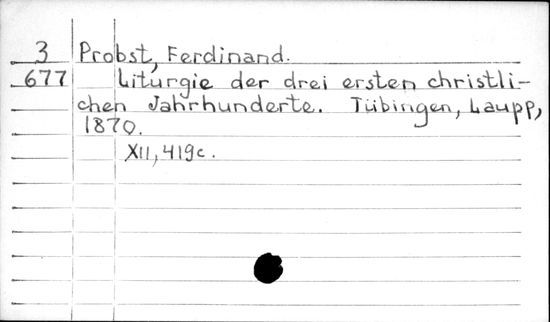 3 Probst, Ferdinand.
677 Liturgie der drei ersten christli-
chen Jahrhunderte. Tübingen, Laupp,
1870.
XII, 419c.